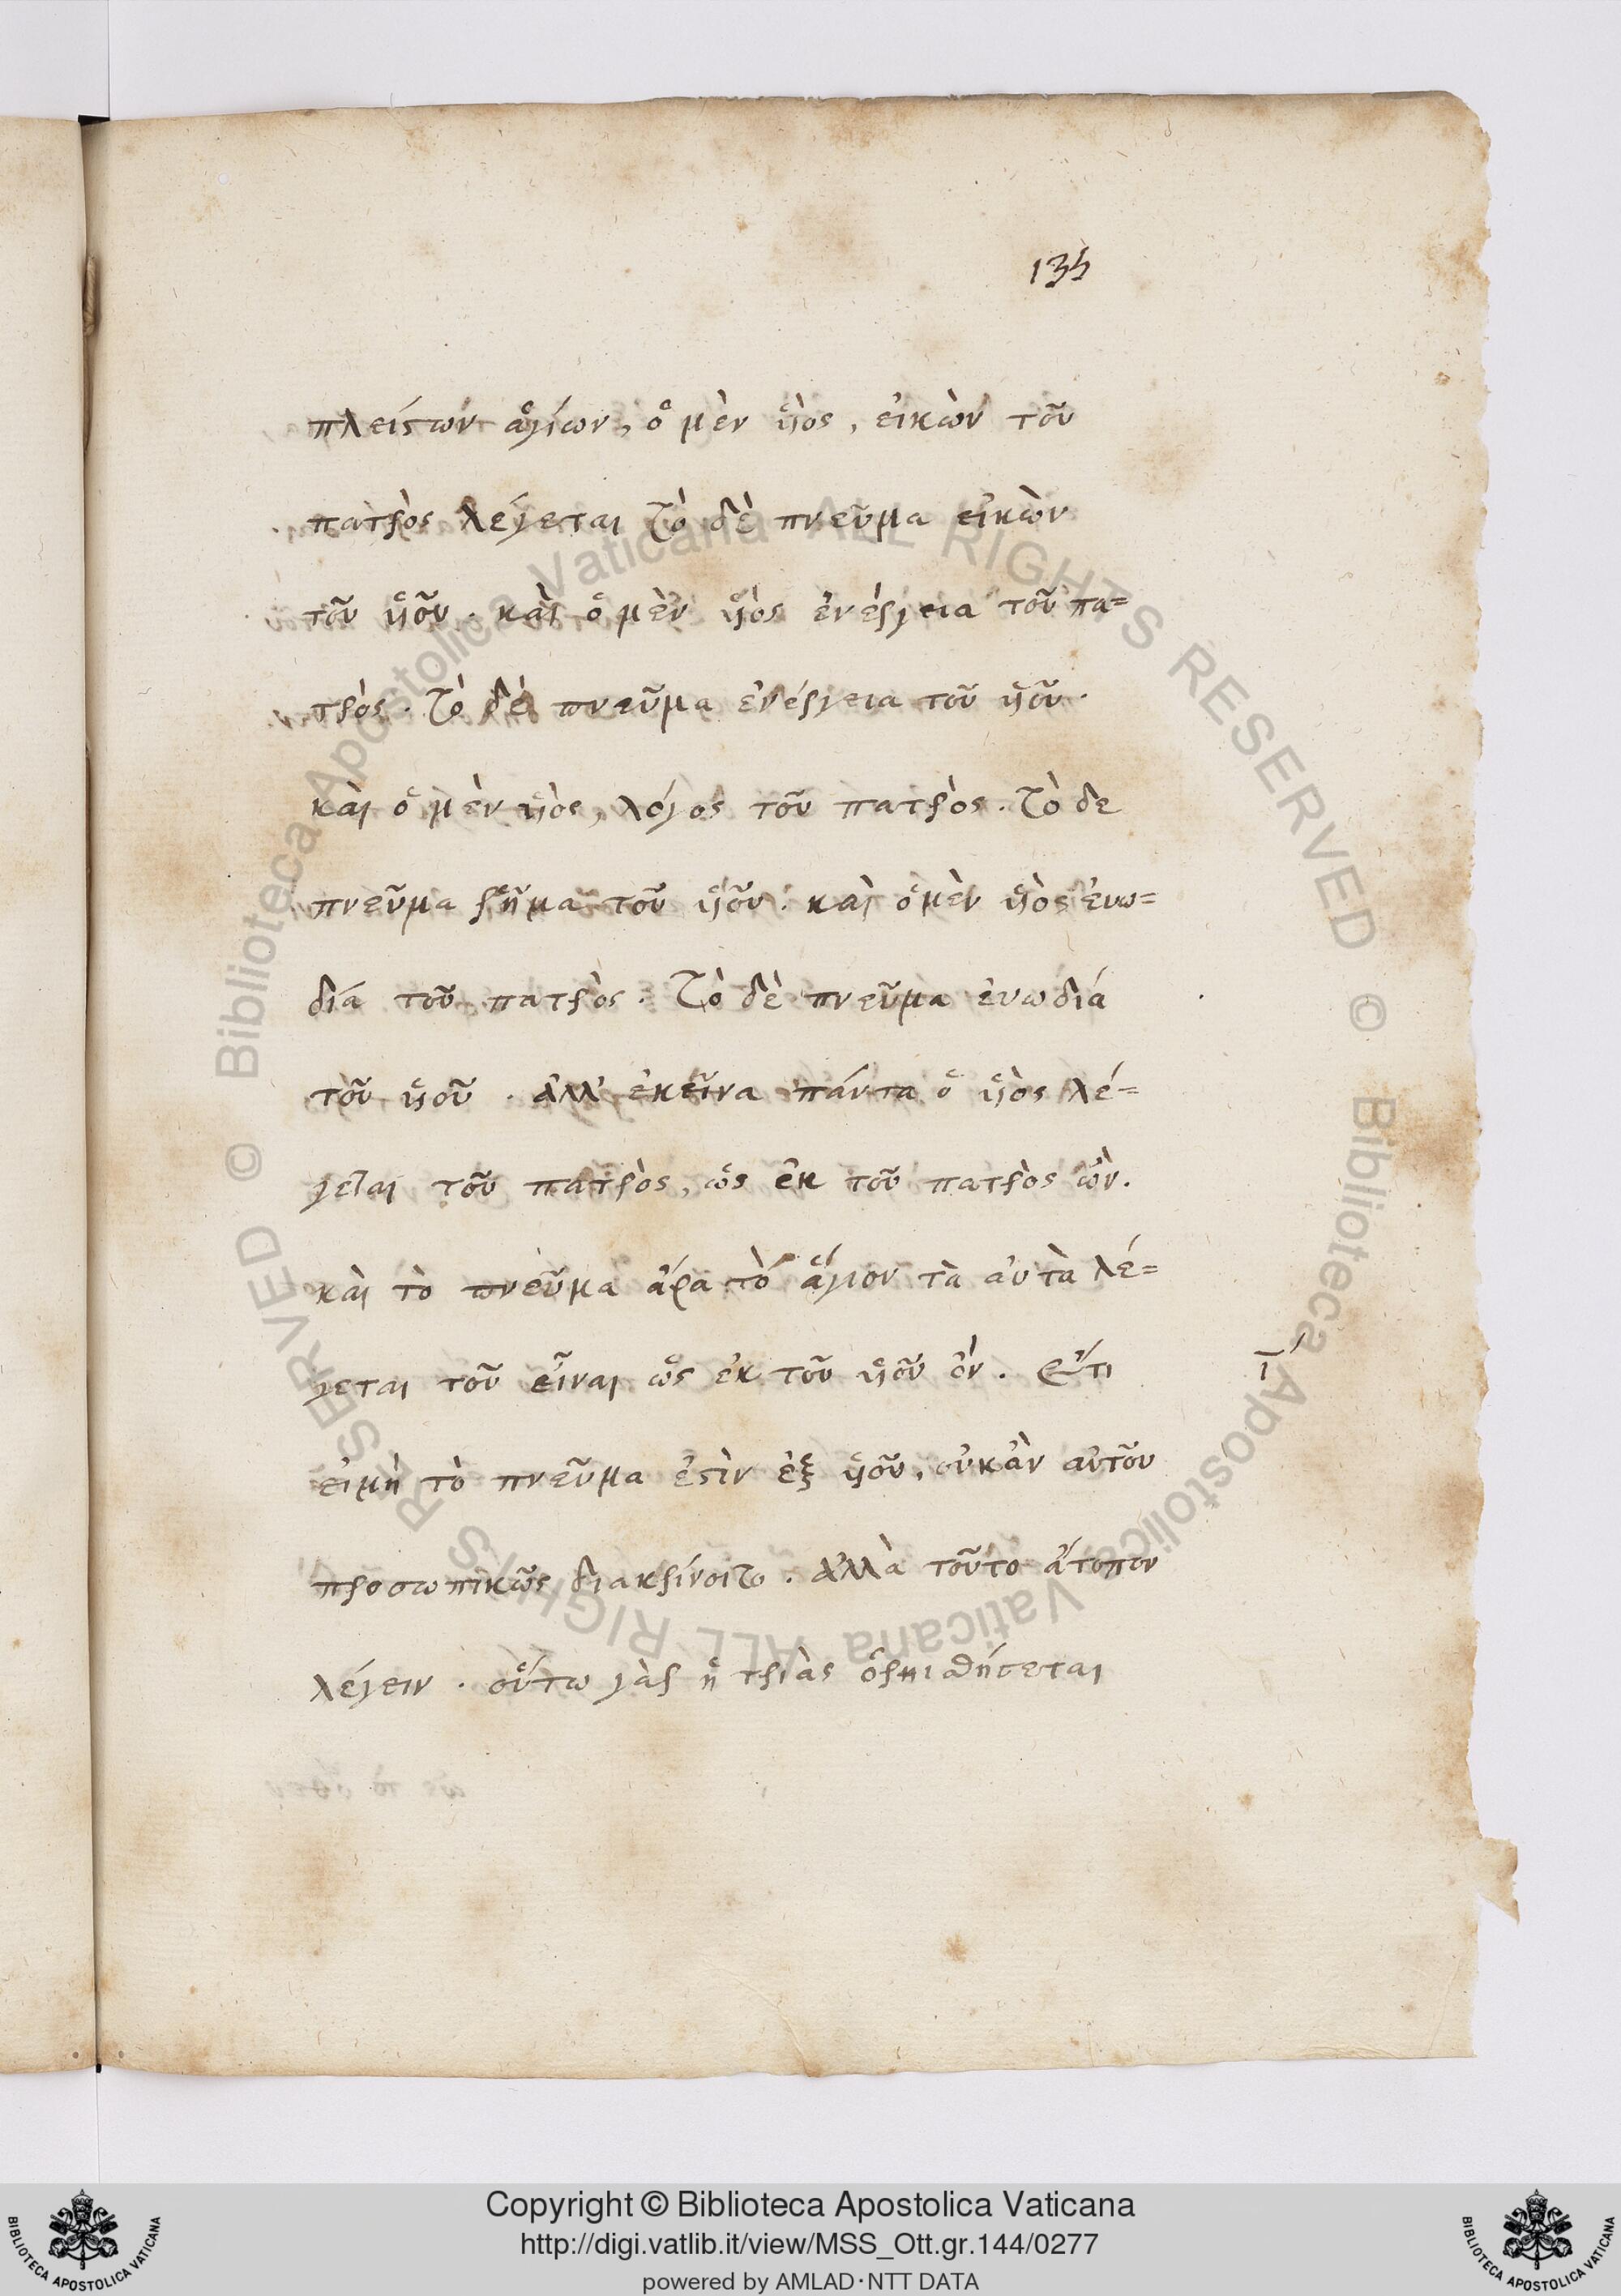 135
πλείστων ἁγίων, ὁ μὲν ὑιὸς, εἰκὼν τοῦ
πατρὸς λέγεται τὸ δὲ πνεῦμα εἰκὼν
τοῦ ὑιοῦ. καὶ ὁ μὲν ὑιὸς ἐνέργεια τοῦ πα=
τρὸς. τὸ δὲ πνεῦμα ἐνέργεια τοῦ ὑιοῦ.
καὶ ὁ μὲν ὑιὸς, λόγος τοῦ πατρὸς. τὸ δε
πνεῦμα ῥῆμα τοῦ ὑιοῦ. καὶ ὁ μὲν ὑιὸς ἐυω=
δία τοῦ πατρὸς. τὸ δὲ πνεῦμα ἐυωδιά
τοῦ ὑιοῦ. ἀλλ' ἐκεῖνα πάντα ὁ ὑιὸς λέ=
γεται τοῦ πατρὸς, ὡς ἐκ τοῦ πατρὸς ὢν.
καὶ τὸ πνεῦμα ἄρα τὸ ἅγιον τὰ αὐτὰ λέ=
γεται τοῦ εἶναι ὡς ἐκ τοῦ ὑιοῦ ὂν. Ἔτι
ι´
εἰμὴ τὸ πνεῦμα ἐστὶν ἐξ ὑιοῦ, οὐκἂν αὐτοῦ
προσωπικῶς διακρίνοιτο. ἀλλὰ τοῦτο ἄτοπον
λέγειν. οὕτω γὰρ ἡ τριὰς ὁρμιαθήσεται
Copyright © Biblioteca Apostolica Vaticana
http://digi.vatlib.it/view/MSS_Ott.gr.144/0277
powered by AMLAD·NTT DATA
BIBLIOTECA APOSTOLICA VATICANA
BIBLIOTECA APOSTOLICA VATICANA
© Biblioteca Apostolica Vaticana ALL RIGHTS RESERVED
© Biblioteca Apostolica Vaticana ALL RIGHTS RESERVED